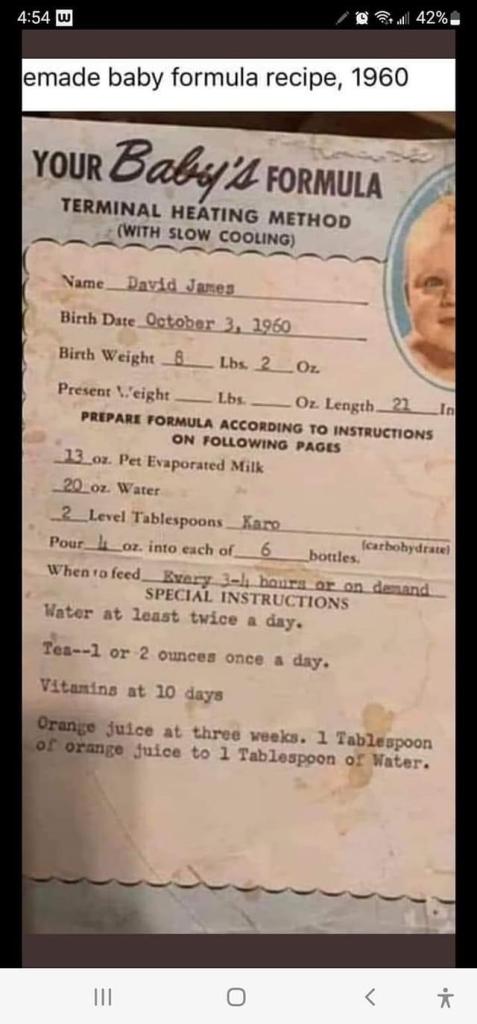 4:54 W 42%
emade baby formula recipe, 1960
YOUR Baby's FORMULA
TERMINAL HEATING METHOD
(WITH SLOW COOLING)
Name David James
Birth Date October 3, 1960
Birth Weight 8 Lbs. 2 Oz.
Present Weight Lbs. Oz. Length 21 In
PREPARE FORMULA ACCORDING TO INSTRUCTIONS
ON FOLLOWING PAGES
13 oz. Pet Evaporated Milk
20 oz. Water
2 Level Tablespoons Karo
(carbohydrate)
Pour 4 oz. into each of 6 bottles.
When to feed Every 3-4 hours or on demand
SPECIAL INSTRUCTIONS
Water at least twice a day.
Tea--1 or 2 ounces once a day.
Vitamins at 10 days
Orange juice at three weeks. 1 Tablespoon
of orange juice to 1 Tablespoon of Water.